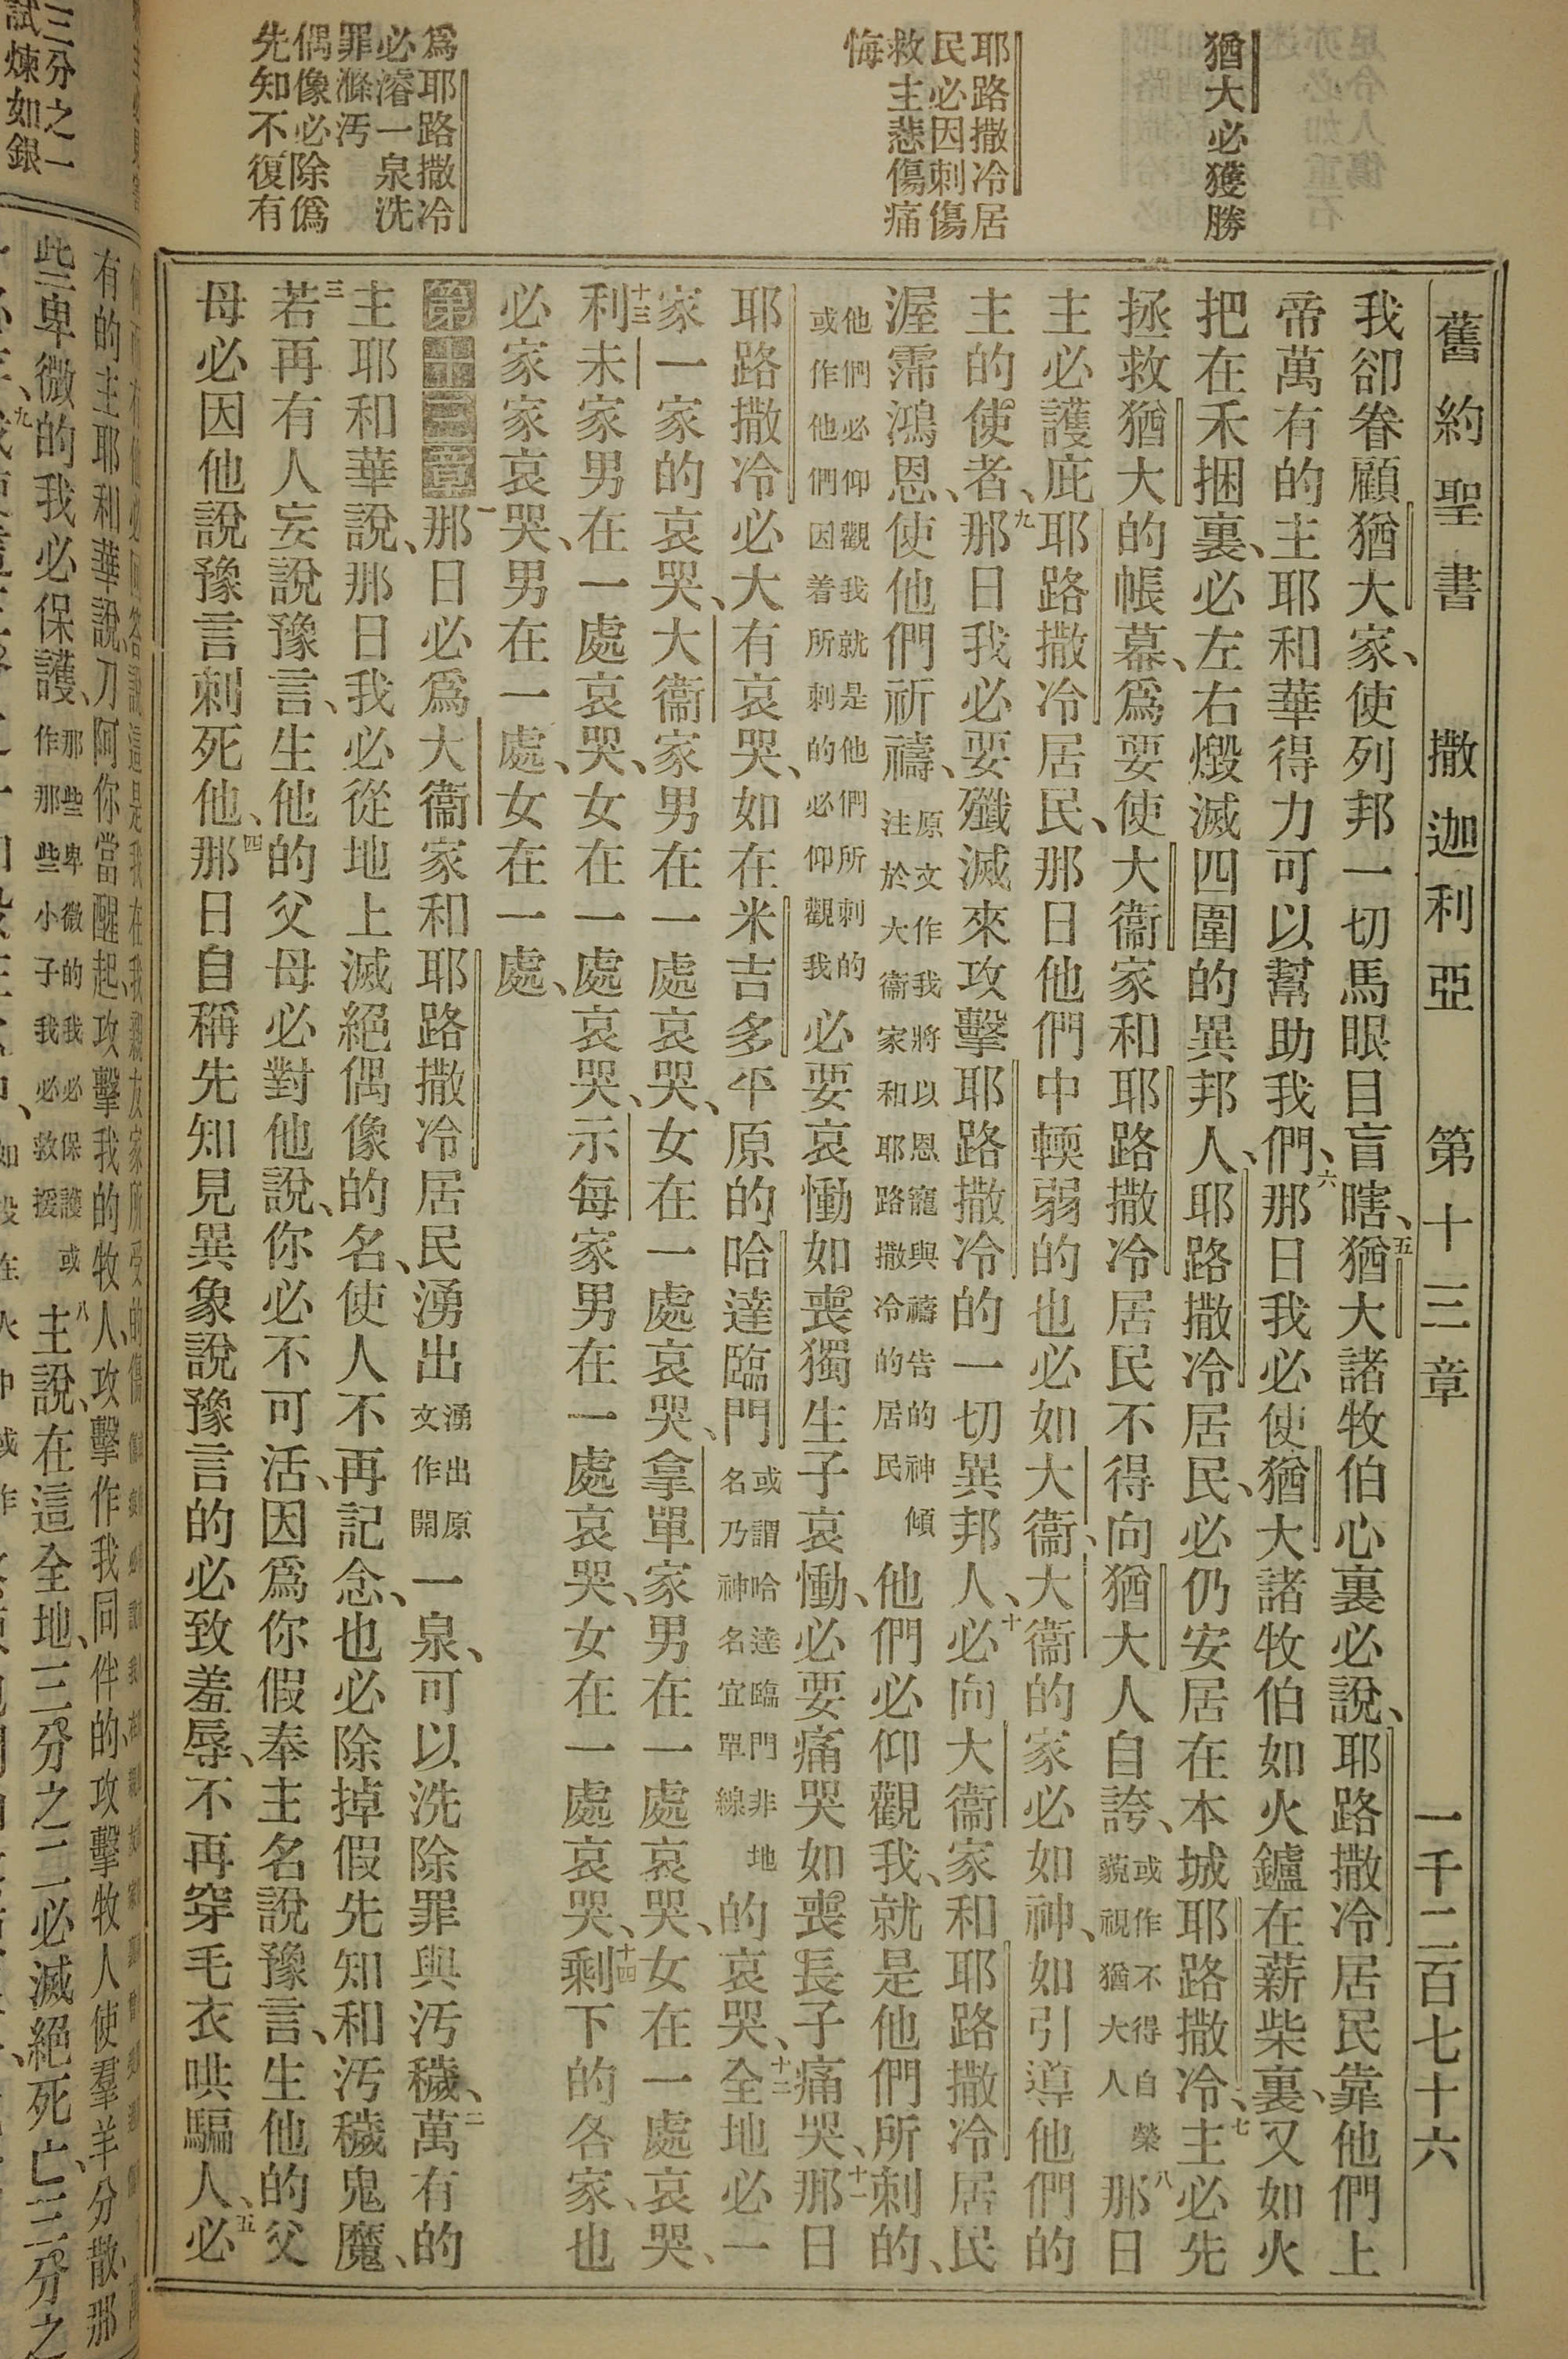 舊約聖書 撒迦利亞 第十三章 一千二百七十六
猶大必獲勝
耶路撒冷居
民必因刺傷
救主悲傷痛
悔
爲耶路撒冷
必濬一泉洗
罪滌汚
偶像必除僞
先知不復有
我卻眷顧猶大家、使列邦一切馬眼目盲瞎、五猶大諸牧伯心裏必說、耶路撒冷居民靠他們上
帝萬有的主耶和華得力可以幫助我們、六那日我必使猶大諸牧伯如火鑪在薪柴裏、又如火
把在禾捆裏、必左右燬滅四圍的異邦人、耶路撒冷居民、必仍安居在本城耶路撒冷、七主必先
拯救猶大的帳幕、爲要使大衞家和耶路撒冷居民不得向猶大人自誇、或作不得自榮藐視猶大人八那日
主必護庇耶路撒冷居民、那日他們中輭弱的也必如大衞、大衞的家必如神、如引導他們的
主的使者、九那日我必要殲滅來攻擊耶路撒冷的一切異邦人、十必向大衞家和耶路撒冷居民
渥霈鴻恩、使他們祈禱、原文作我將以恩寵與禱告的神傾注於大衞家和耶路撒冷的居民他們必仰觀我、就是他們所刺的、
他們必仰觀我就是他們所刺的或作他們因着所刺的必仰觀我必要哀慟如喪獨生子哀慟、必要痛哭如喪長子痛哭、十一那日
耶路撒冷必大有哀哭、如在米吉多平原的哈達臨門或謂哈達臨門非地名乃神名宜單線的哀哭、十二全地必一
家一家的哀哭、大衞家男在一處哀哭、女在一處哀哭、拿單家男在一處哀哭、女在一處哀哭、
十三利未家男在一處哀哭、女在一處哀哭、示每家男在一處哀哭、女在一處哀哭、十四剩下的各家、也
必家家哀哭、男在一處、女在一處、
第十三章一那日必爲大衞家和耶路撒冷居民湧出湧出原文作開一泉、可以洗除罪與汚穢、二萬有的
主耶和華說、那日我必從地上滅絕偶像的名、使人不再記念、也必除掉假先知和汚穢鬼魔、
三若再有人妄說豫言、生他的父母必對他說、你必不可活、因爲你假奉主名說豫言、生他的父
母必因他說豫言刺死他、四那日自稱先知見異象說豫言的必致羞辱、不再穿毛衣哄騙人、五必
三分之一
試煉如銀
有的主耶和華說、刀阿你當醒起、攻擊我的牧人、攻擊作我同伴的、攻擊牧人使羣羊分散、那
些卑微的我必保護、那些卑微的我必保護或作那些小子我必救援八主說、在這全地、三分之二必滅絕死亡、三分之